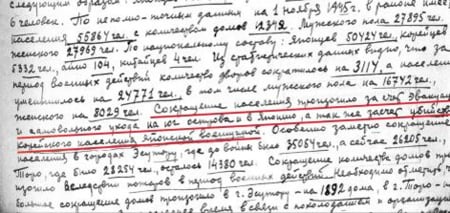 следующим образом:
6 человек. По неполно-точным данным на 1 ноября 1945г. в районе
населения 55864 чел. с количеством домов 12342. Мужского пола 27895 чел.
женского 27969 чел. По национальному составу: Японцев 50424 чел., корейцев
5332 чел., айно 104, китайцев 4 чел. Из статистических данных видно, что за
период военных действий количество дворов сократилось на 3114, а населен
уменьшилось на 24771 чел., в том числе мужского пола на 16742 чел.
женского на 8029 чел. Сокращение населения произошло за счет эвакуац
и самовольного ухода на юг острова и в Японию, а так же за счет убийств
корейского населения японской военщиной. Особенно заметно сокращение
населения в городах Эсутору, где до войны было 35054 чел., а сейчас 26205 чел.,
Торо, где было 28254 чел., осталось 14380 чел. Сокращение количества домов про
изошло вследствии пожаров в период военных действий. Необходимо отметить, ч
большое сокращение домов произошло в г. Эсутору - на 1892 дома, в г. Торо - на
время в связи с похолоданием и организац